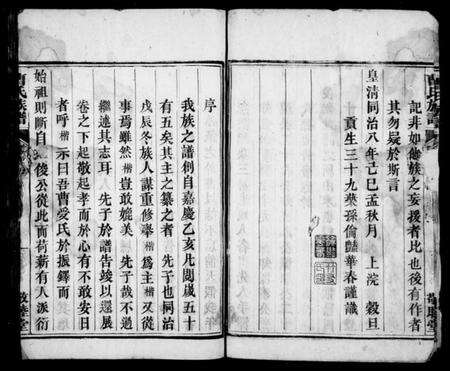 記非如他族之妄援者比也後有作者
其勿疑於斯言
皇清同治八年己巳孟秋月 上浣 穀旦
十貢生三十九葉孫倫豔華春謹識
序
我族之譜創自嘉慶乙亥凡閱歲五十
有五矣其主之纂之者 先子也同治
戊辰冬族人謀重修舉楷爲主又從
事焉雖然楷豈敢媲美 先子哉不過
繼述其志耳 先子於譜告竣以還展
卷之下起敬起孝而於心有不敢安日
者呼楷示曰吾曹受氏於振鐸而
始祖則斷自 後公從此而苟薪有人派衍
曹氏族譜
敦睦堂